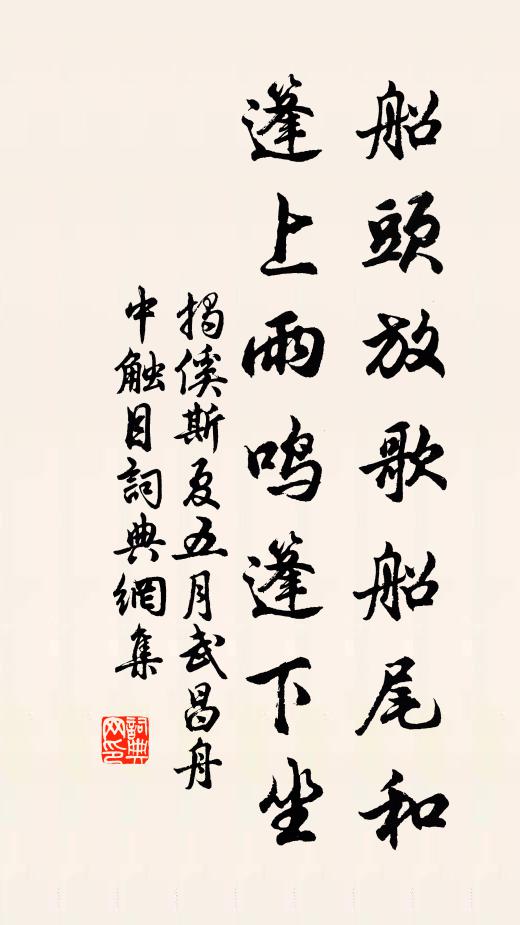 船頭放歌船尾和
篷上雨鳴篷下坐
揭傒斯夏五月武昌舟
中触目詞典網集
詞典网印